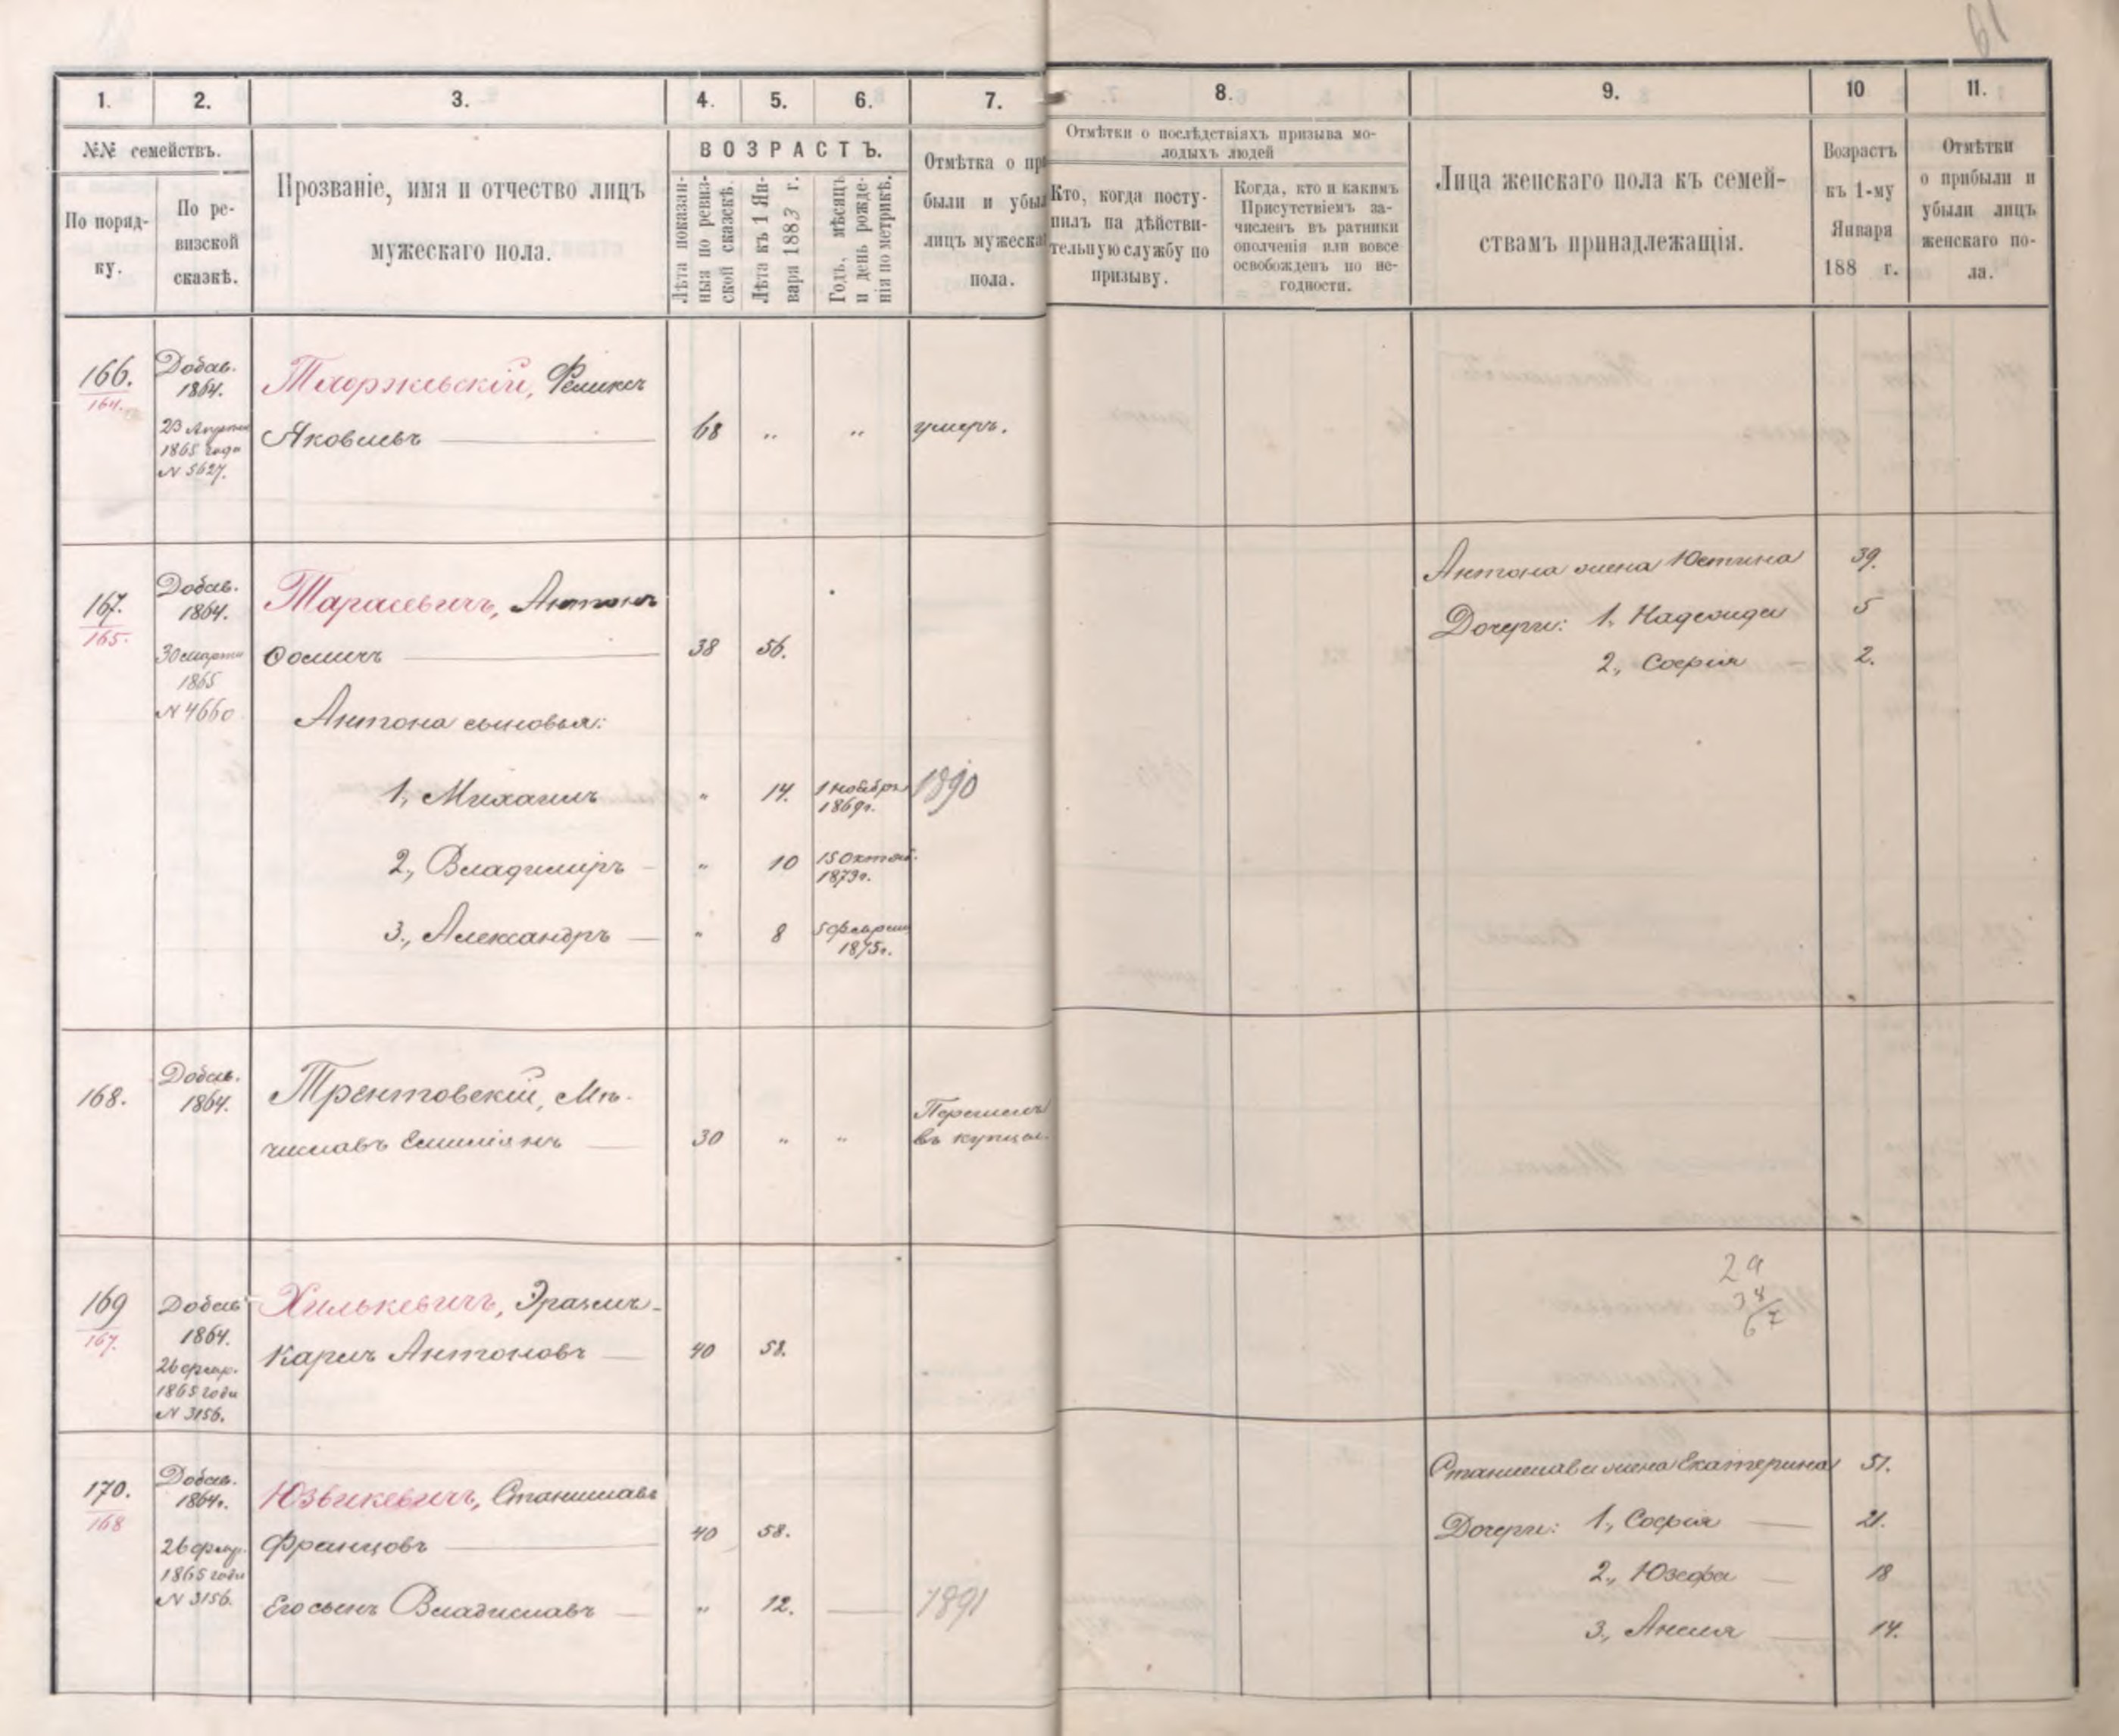 1.
2.
3.
4.
5.
6.
7.
8.
9.
10
11.
№№ семействъ.
По поряд-
ку.
По ре-
визской
сказкѣ.
Прозваніе, имя и отчество лицъ
мужескаго пола.
ВОЗРАСТЪ.
Лѣта показан-
ныя по ревиз-
ской сказкѣ.
Лѣта къ 1 Ян-
варя 1883 г.
Годъ, мѣсяцъ
и день рожде-
нія по метрикѣ.
Отмѣтка о при
были и убыл
лицъ мужеска
пола.
Отмѣтки о послѣдствіяхъ призыва мо-
лодыхъ людей
Кто, когда посту-
пилъ на дѣйстви-
тельную службу по
призыву.
Когда, кто и какимъ
Присутствіемъ за-
численъ въ ратники
ополченія или вовсе
освобожденъ по не-
годности.
Лица женскаго пола къ семей-
ствамъ принадлежащія.
Возрастъ
къ 1-му
Января
188 г.
Отмѣтки
о прибыли и
убыли лицъ
женскаго по-
ла.
166.
164.
Добав.
1864.
23 Апрѣля
1865 года
N 5627.
Феликсъ
Яковлевъ
68 " "
умеръ.
167.
165.
Добав.
1864.
30 марта
1865
N 4660
Тарасевичъ, Антонъ
Осиповъ 38 56.
Антона сыновья:
1, Михаилъ " 14. 1 ноября
1869г.
1890
2, Владиміръ " 10 15 Октяб.
1873г.
3, Александръ " 8 5 феврал
1875г.
Антона жена Юстина 39.
Дочери: 1, Надежда 5
2, Софія 2.
168.
Добав.
1864.
Трентовскій, Мѣ-
числавъ Емиліянъ 30 " "
Перешелъ
въ купцы.
169
167.
Добав
1864.
26 февр.
1865 года
N 3156.
Хилькевичъ, Эразмъ-
Карлъ Антоновъ 40 58.
29
38
67
170.
168
Добав.
1864г.
26 февр.
1865 года
N 3156.
Юзвикевичъ, Станиславъ
Францовъ 40 58.
Его сынъ Владиславъ " 12.
1891
Станислава жена Екатерина 51.
Дочери: 1, Софія 21.
2, Юзефа 18
3, 14.